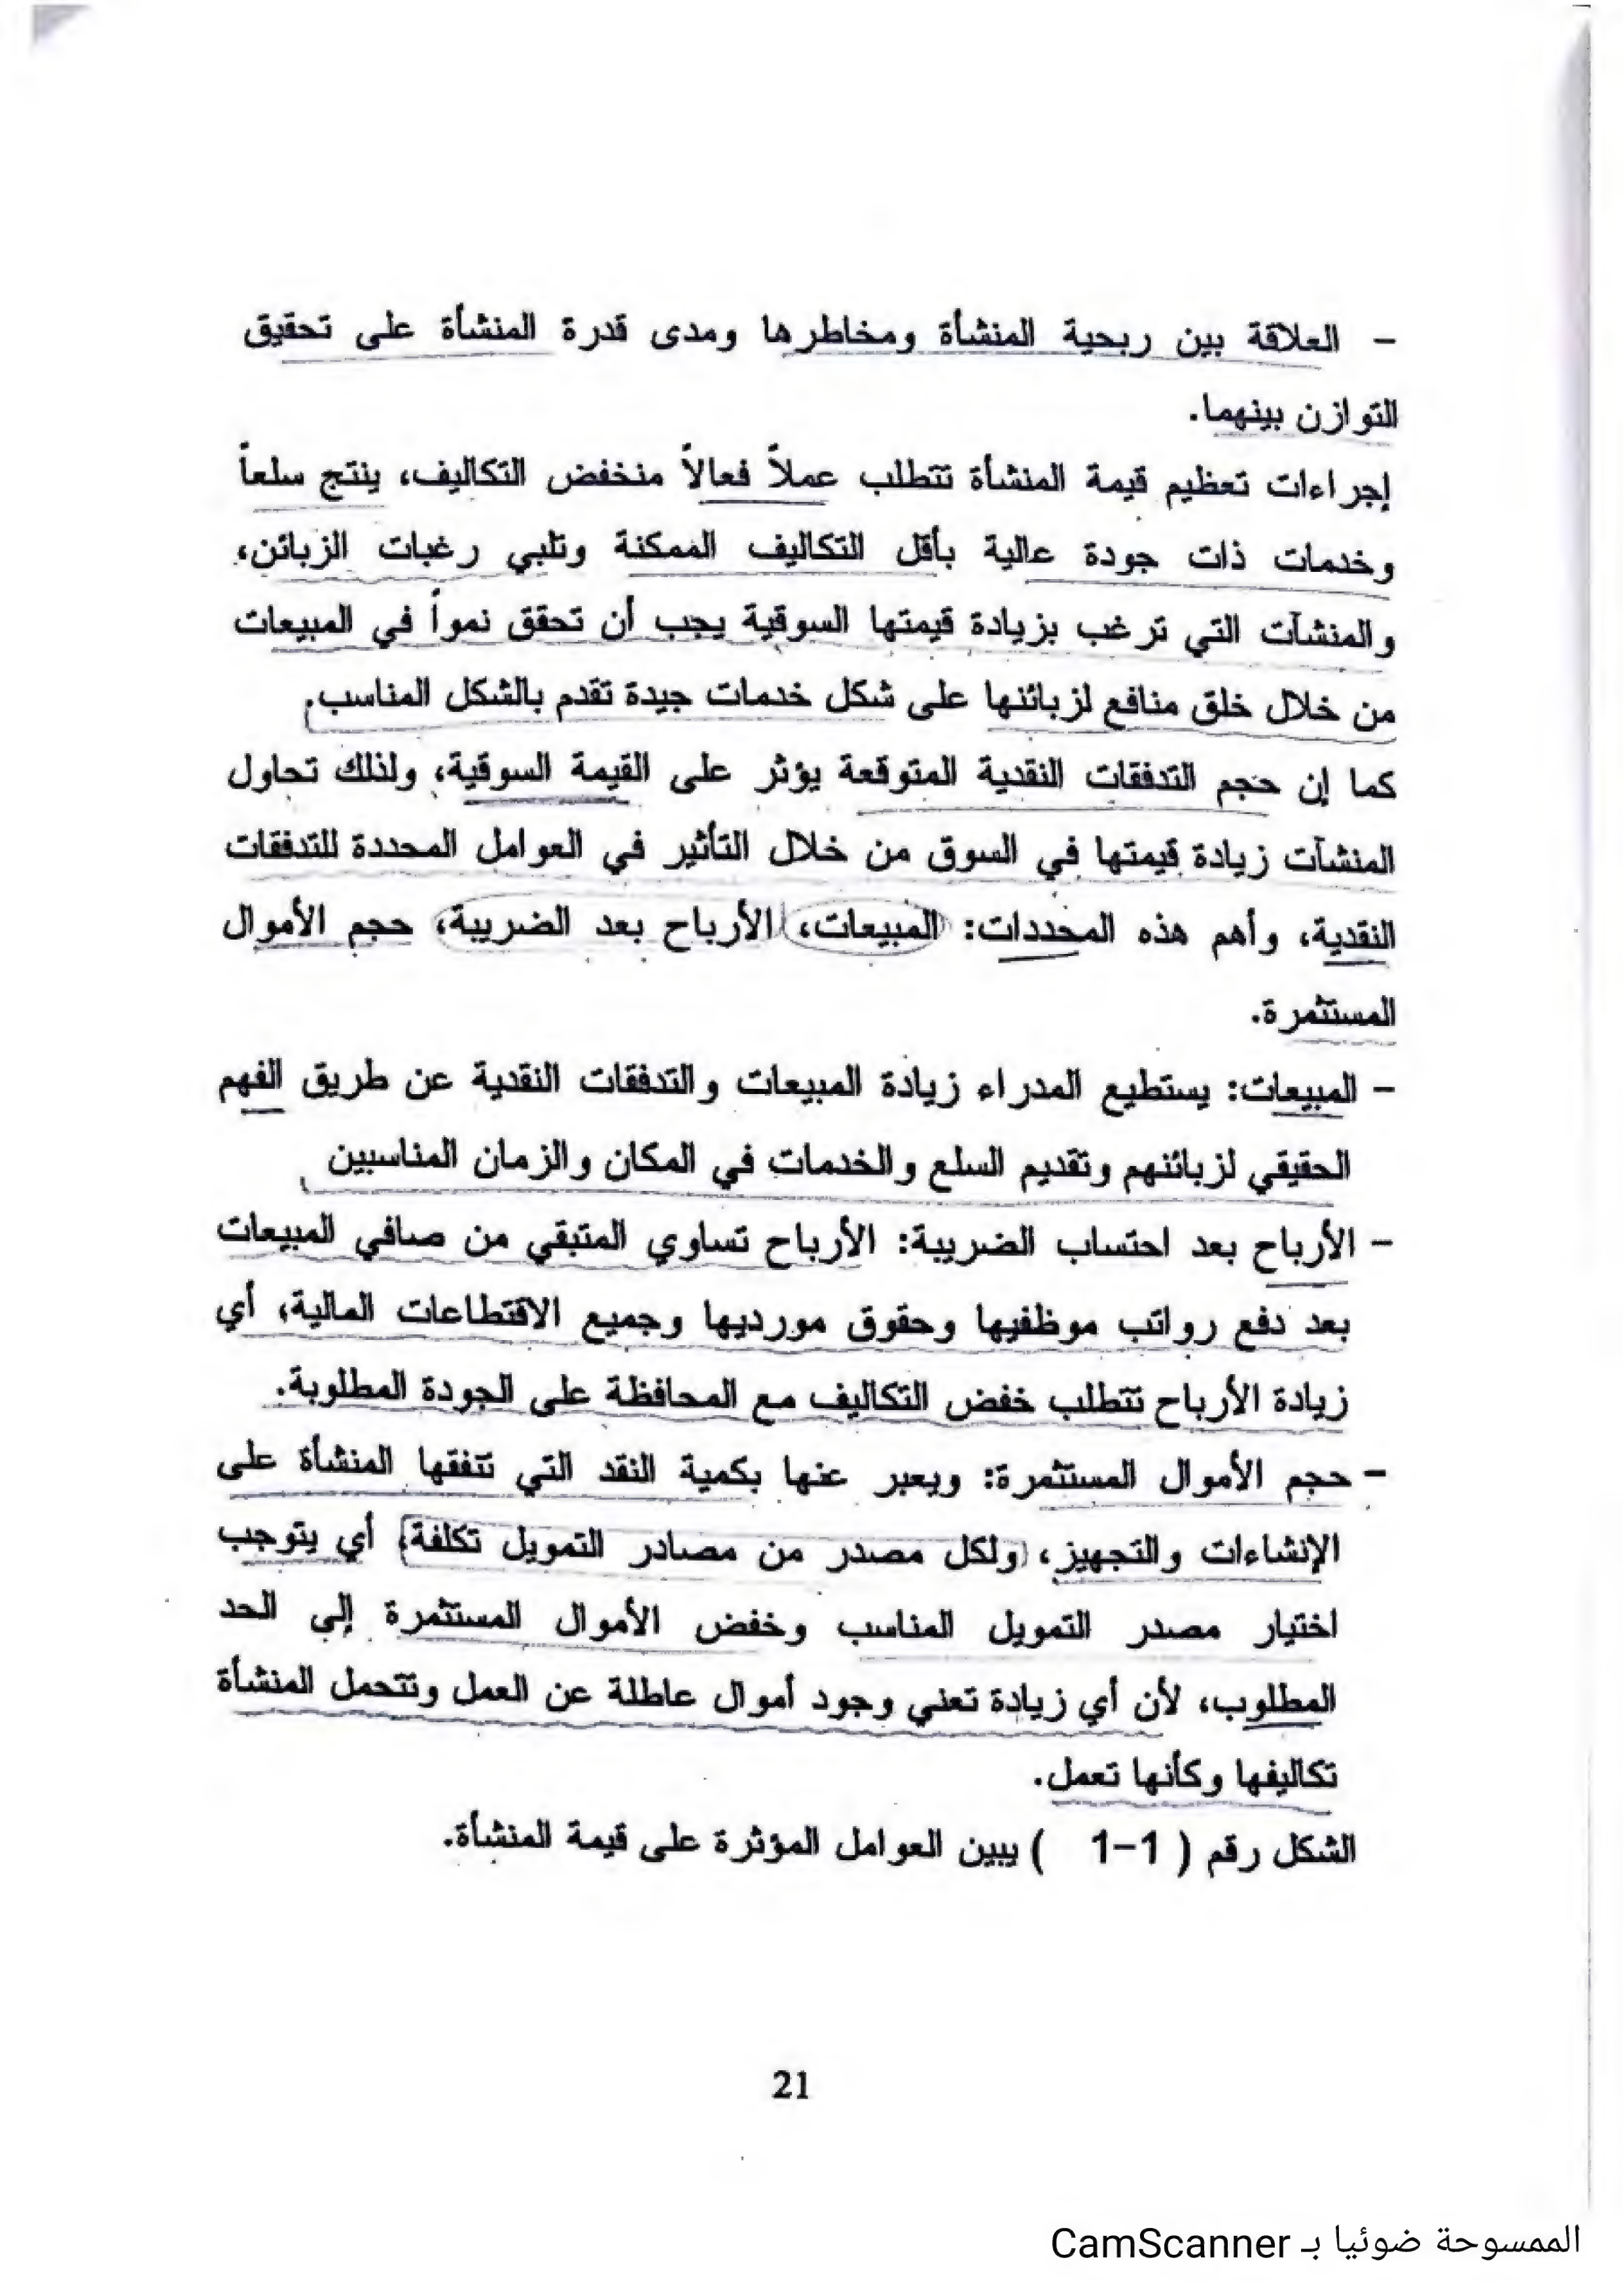 - العلاقة بين ربحية المنشأة ومخاطرها ومدى قدرة المنشأة على تحقيق
التوازن بينهما.
إجراءات تعظيم قيمة المنشأة تتطلب عملاً فعالاً منخفض التكاليف، ينتج سلعاً
وخدمات ذات جودة عالية بأقل التكاليف الممكنة وتلبي رغبات الزبائن،
والمنشآت التي ترغب بزيادة قيمتها السوقية يجب أن تحقق نمواً في المبيعات
من خلال خلق منافع لزبائنها على شكل خدمات جيدة تقدم بالشكل المناسب.
كما إن حجم التدفقات النقدية المتوقعة يؤثر على القيمة السوقية، ولذلك تحاول
المنشآت زيادة قيمتها في السوق من خلال التأثير في العوامل المحددة للتدفقات
النقدية، وأهم هذه المحددات: المبيعات، الأرباح بعد الضريبة، حجم الأموال
المستثمرة.
- المبيعات: يستطيع المدراء زيادة المبيعات والتدفقات النقدية عن طريق الفهم
الحقيقي لزبائنهم وتقديم السلع والخدمات في المكان والزمان المناسبين
- الأرباح بعد احتساب الضريبة: الأرباح تساوي المتبقي من صافي المبيعات
بعد دفع رواتب موظفيها وحقوق مورديها وجميع الاقتطاعات المالية، أي
زيادة الأرباح تتطلب خفض التكاليف مع المحافظة على الجودة المطلوبة.
- حجم الأموال المستثمرة: ويعبر عنها بكمية النقد التي تنفقها المنشأة على
الإنشاءات والتجهيز، ولكل مصدر من مصادر التمويل تكلفة، أي يتوجب
اختيار مصدر التمويل المناسب وخفض الأموال المستثمرة إلى الحد
المطلوب، لأن أي زيادة تعني وجود أموال عاطلة عن العمل وتتحمل المنشأة
تكاليفها وكأنها تعمل.
الشكل رقم ( 1-1 ) يبين العوامل المؤثرة على قيمة المنشأة.
21
الممسوحة ضوئيا بـ CamScanner